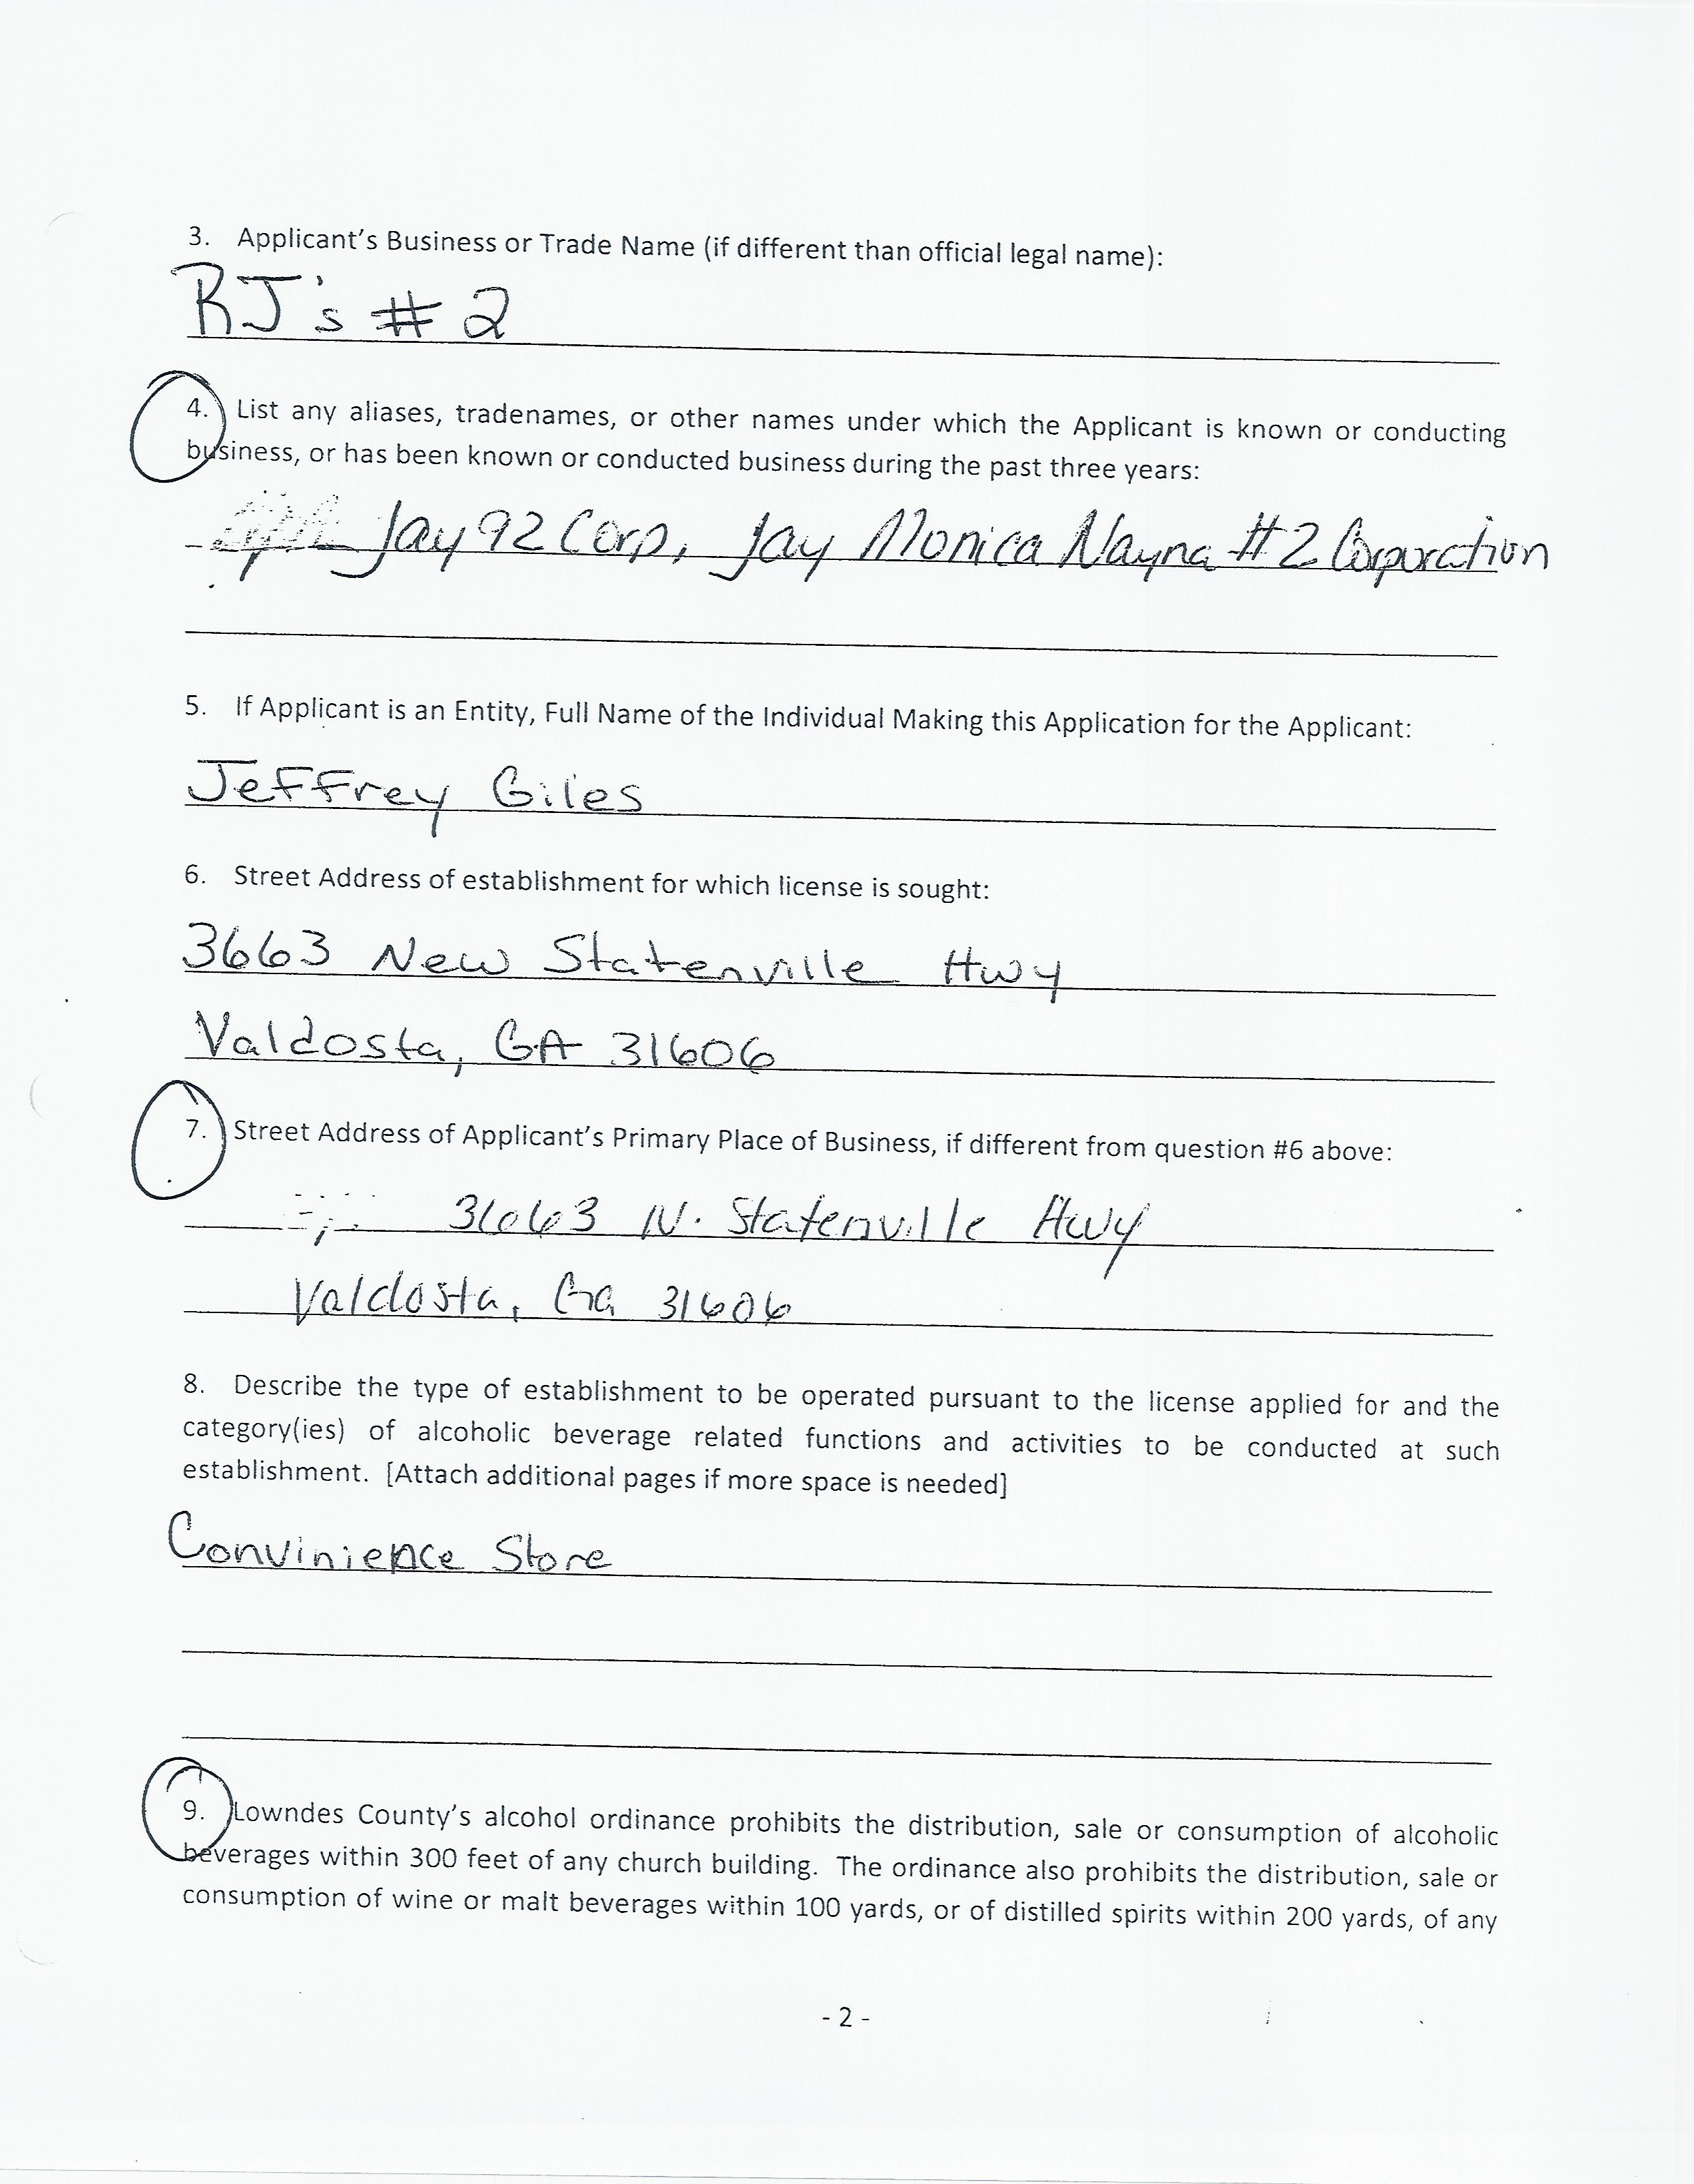 3. Applicant's Business or Trade Name (if different than official legal name):
RJ's # 2
4. List any aliases, tradenames, or other names under which the Applicant is known or conducting
business, or has been known or conducted business during the past three years:
Jay 92 Corp, Jay Monica Nayna # 2 Corporation
5. If Applicant is an Entity, Full Name of the Individual Making this Application for the Applicant:
Jeffrey Giles
6. Street Address of establishment for which license is sought:
3663 New Statenville Hwy
Valdosta, GA 31606
7. Street Address of Applicant's Primary Place of Business, if different from question #6 above:
3663 N. Statenville Hwy
Valdosta, Ga 31606
8. Describe the type of establishment to be operated pursuant to the license applied for and the
category(ies) of alcoholic beverage related functions and activities to be conducted at such
establishment. [Attach additional pages if more space is needed]
Convinience Store
9. Lowndes County's alcohol ordinance prohibits the distribution, sale or consumption of alcoholic
beverages within 300 feet of any church building. The ordinance also prohibits the distribution, sale or
consumption of wine or malt beverages within 100 yards, or of distilled spirits within 200 yards, of any
- 2 -